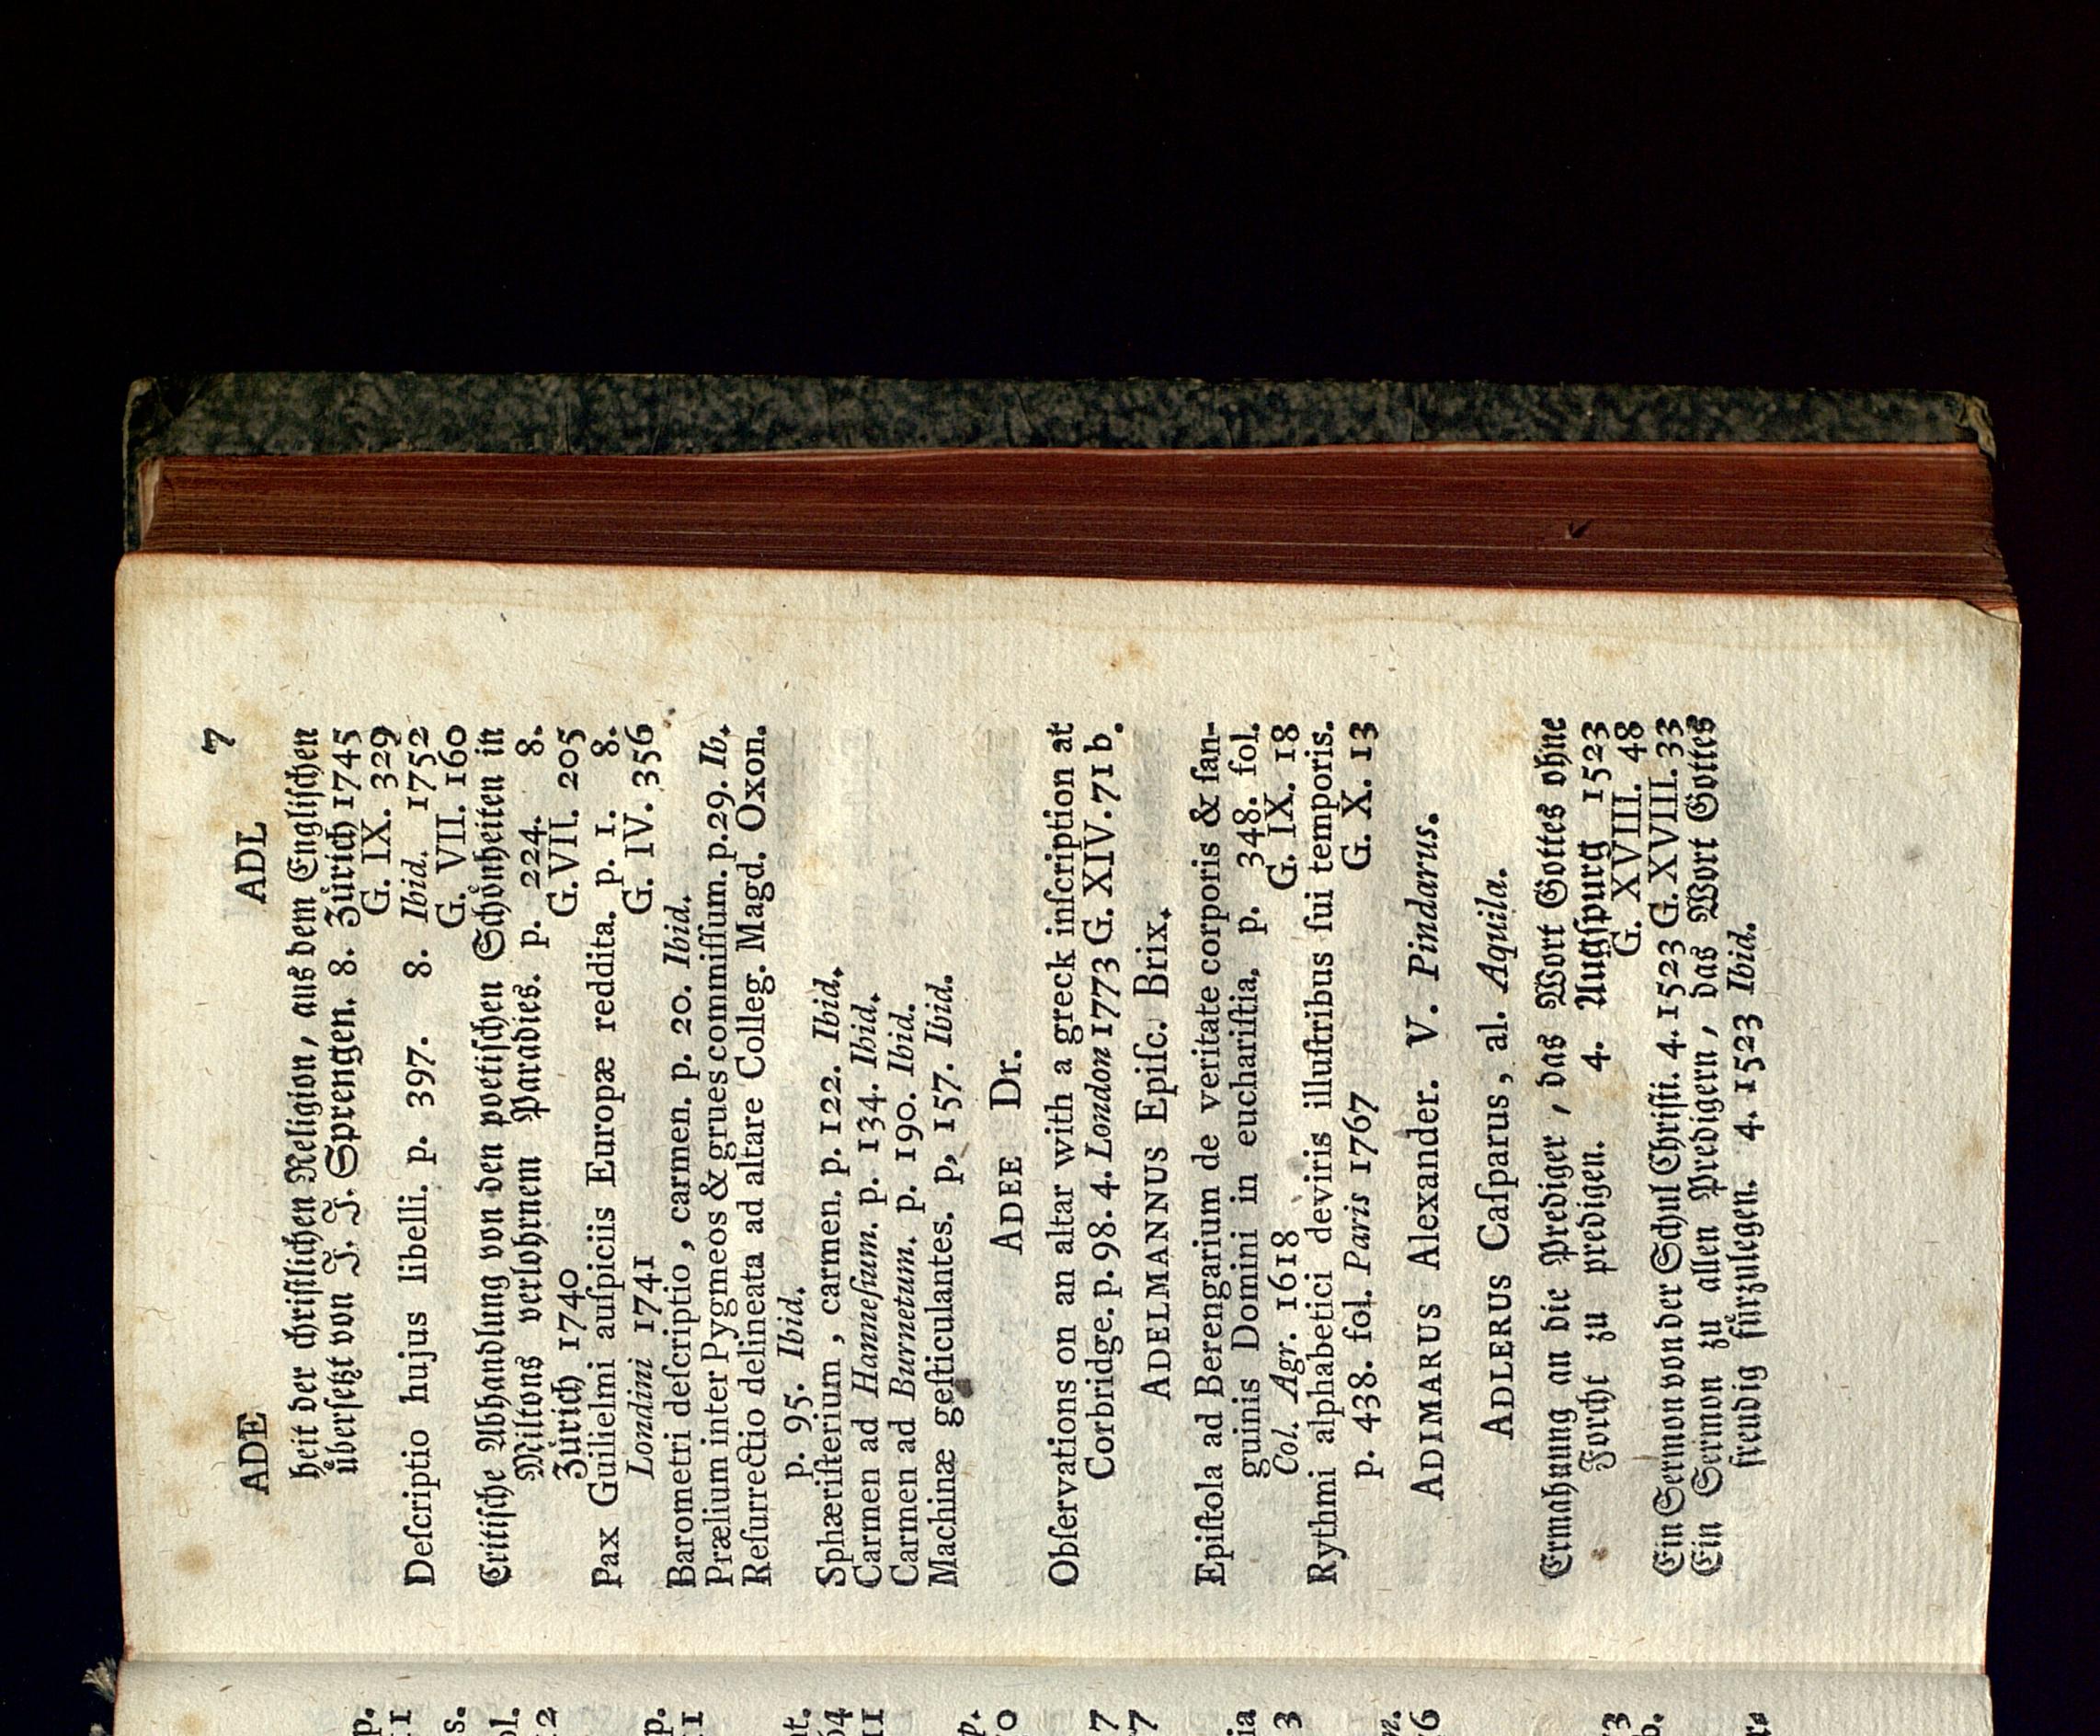 ADE ADL 7
heit der chriſtlichen Religion, aus dem Engliſchen
uͤberſetzt von J. J. Sprengen. 8. Zuͤrich 1745
G. IX. 329
Deſcriptio hujus libelli. p. 397. 8. Ibid. 1752
G. VII. 160
Critiſche Abhandlung von den poetiſchen Schoͤnheiten in
Miltons verlohrnem Paradies. p. 224. 8.
Zuͤrich 1740 G. VII. 205
Pax Guilielmi auſpiciis Europæ reddita. p. 1. 8.
Londini 1741 G. IV. 356
Barometri deſcriptio, carmen. p. 20. Ibid.
Prælium inter Pygmeos & grues commiſſum. p. 29. Ib.
Reſurrectio delineata ad altare Colleg. Magd. Oxon.
p. 95. Ibid.
Sphæriſterium, carmen. p. 122. Ibid.
Carmen ad Hanneſium. p. 134. Ibid.
Carmen ad Burnetum. p. 190. Ibid.
Machinæ geſticulantes. p. 157. Ibid.
ADEE Dr.
Obſervations on an altar with a greck inſcription at
Corbridge. p. 98. 4. London 1773 G. XIV. 71 b.
ADELMANNUS Epiſc. Brix.
Epiſtola ad Berengarium de veritate corporis & ſan-
guinis Domini in euchariſtia. p. 348. fol.
Col. Agr. 1618 G. IX. 18
Rythmi alphabetici deviris illuſtribus ſui temporis.
p. 438. fol. Paris 1767 G. X. 13
ADIMARUS Alexander. V. Pindarus.
ADLERUS Caſparus, al. Aquila.
Ermahnung an die Prediger, das Wort Gottes ohne
Forcht zu predigen. 4. Augſpurg 1523
G. XVIII. 48
Ein Sermon von der Schul Chriſti. 4. 1523 G. XVIII. 33
Ein Sermon zu allen Predigern, das Wort Gottes
freudig fuͤrzulegen. 4. 1523 Ibid.